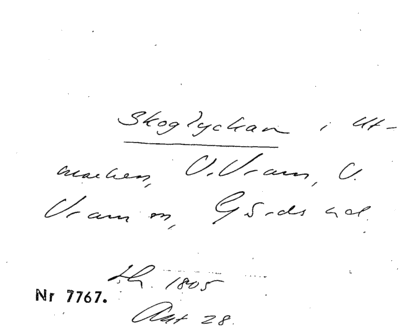 Skoglyckan i Ut-
marken, V. Vram, V.
Vram sn, Gärds hd.
h. 1805
Nr 7767.
Akt 28.